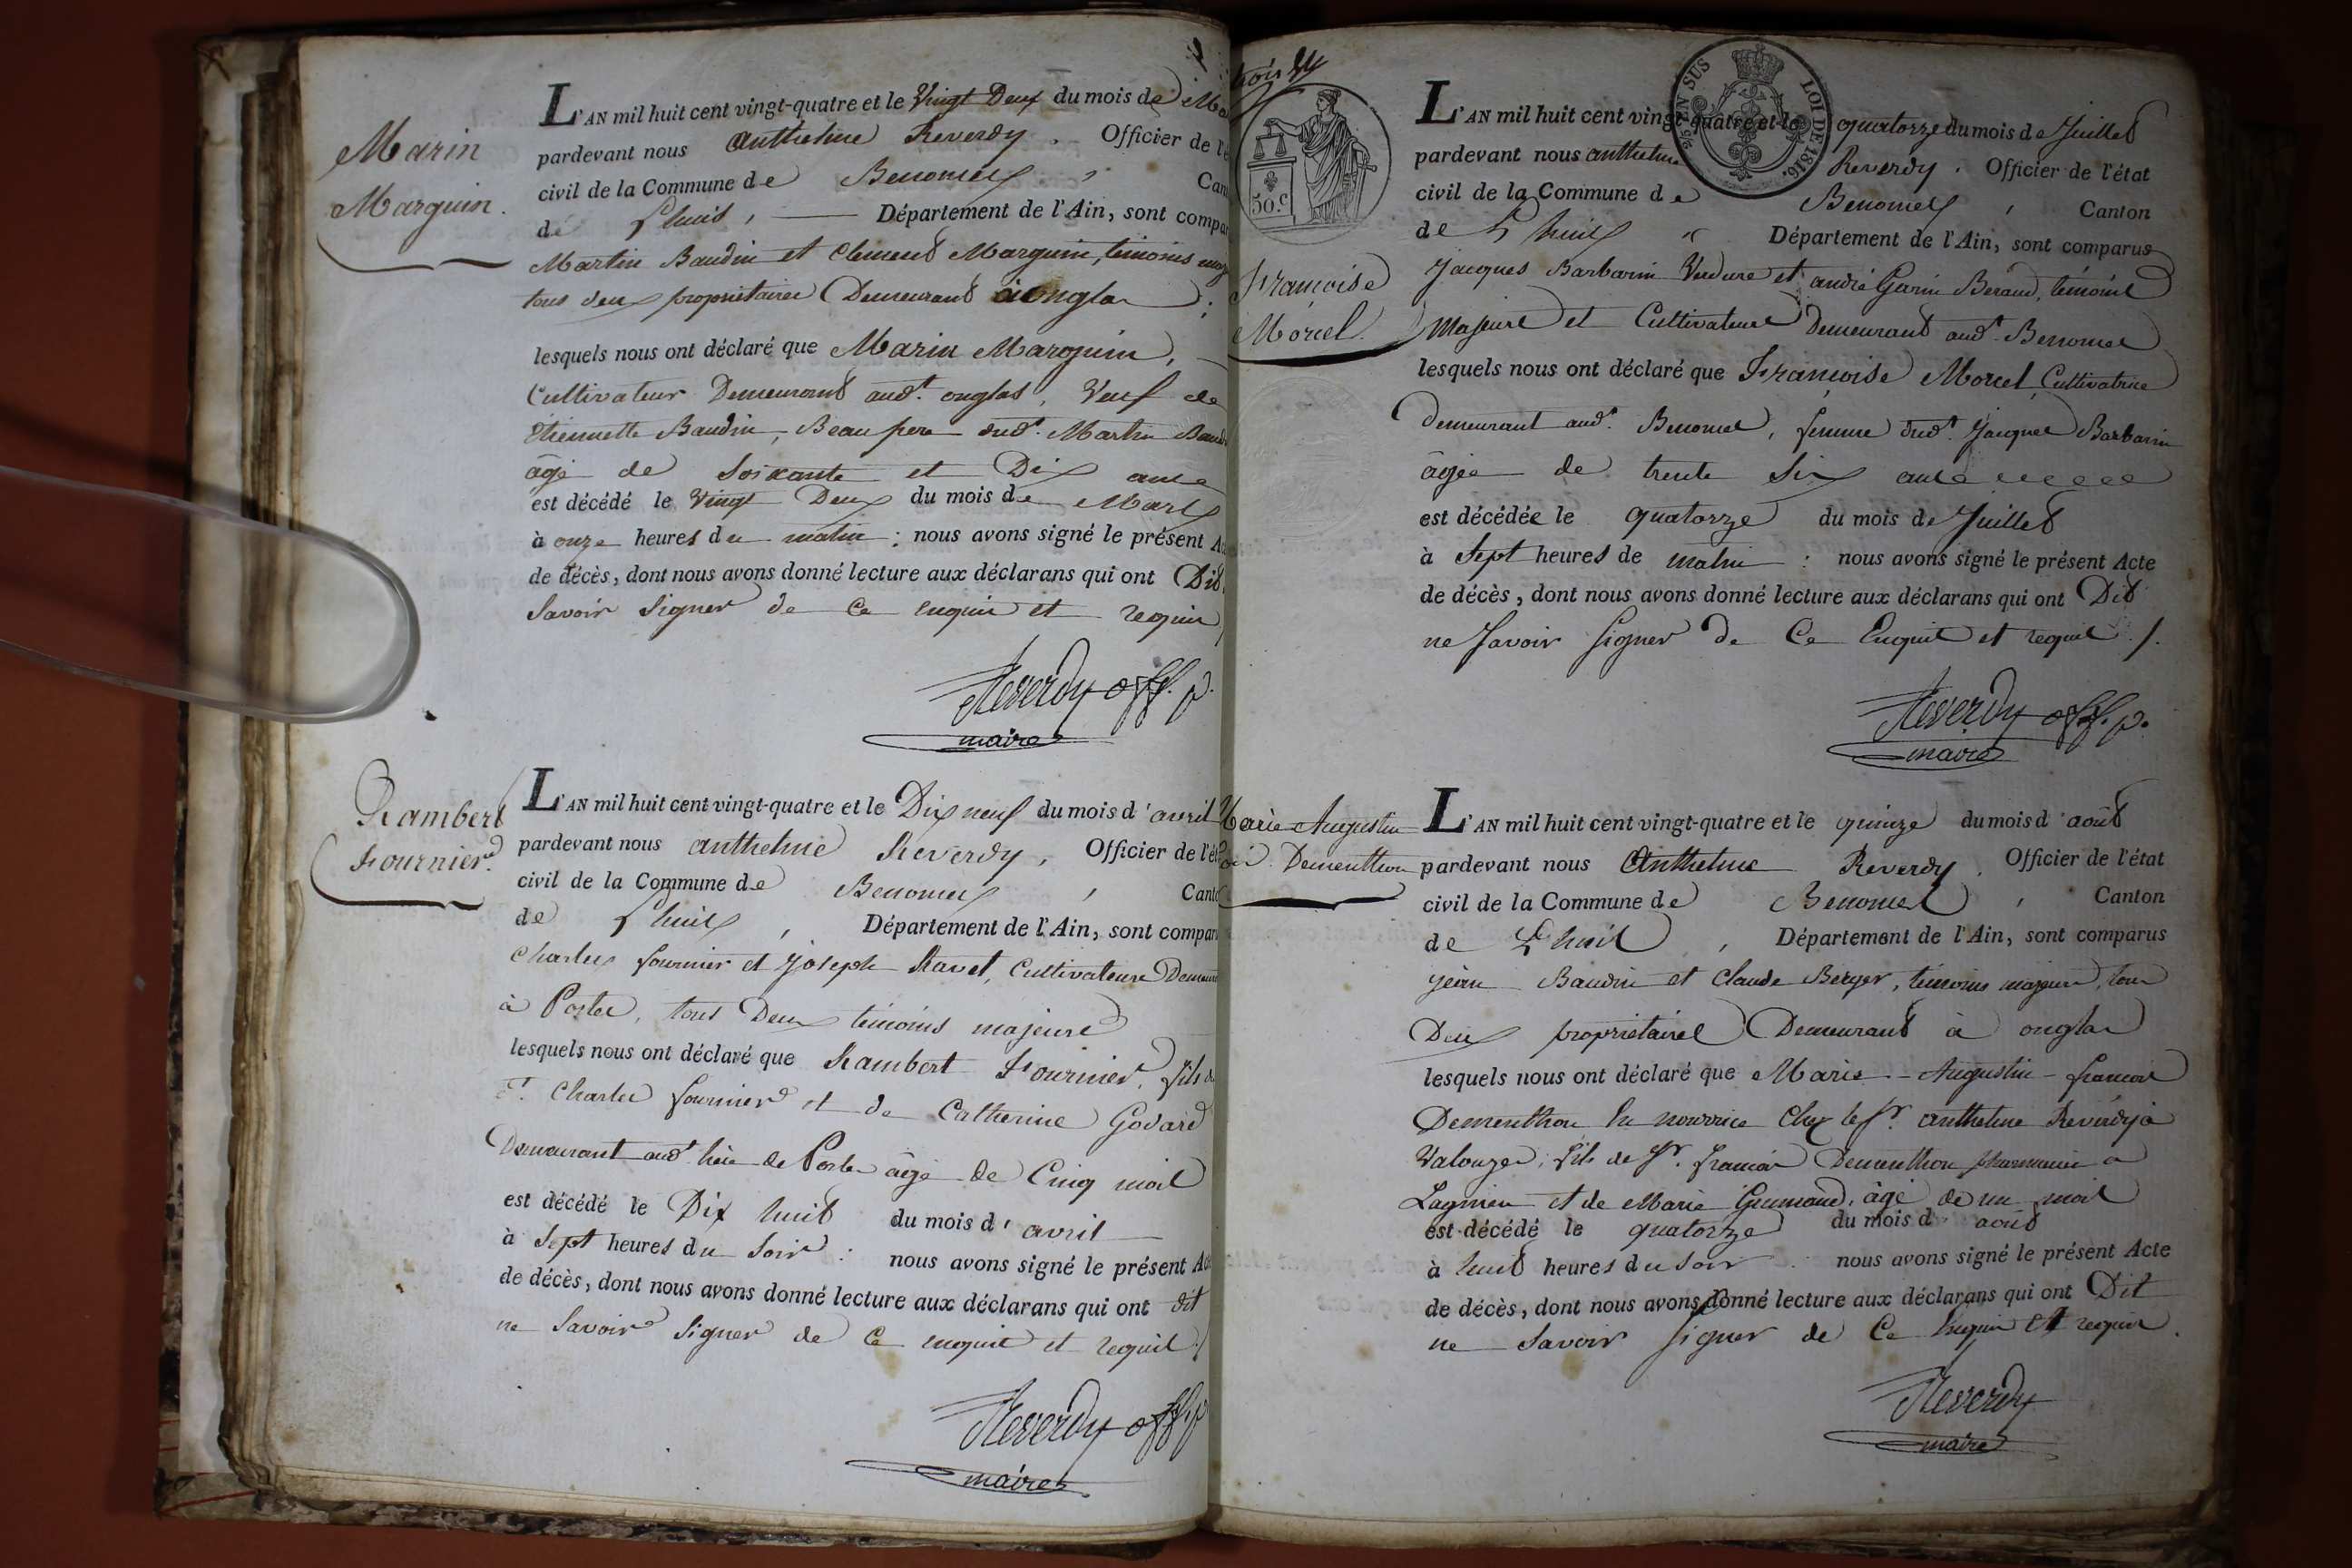 Marin
Marguin.
L'AN mil huit cent vingt-quatre et le Vingt Deux du mois de
pardevant nous Anthelme Reverdy. Officier de l'é
civil de la Commune de Benonces, Can
de Lhuis, Département de l'Ain, sont compar
Martin Baudin et Clement Marguin, témoins
tous deux proprietaires Demeurant à onglas;
lesquels nous ont déclaré que Marin Marguin,
Cultivateur Demeurant aud.t onglas, Veuf de
Etiennette Baudin, Beau pere dud.t Martin Baudi
âgé de Soixante et Dix ans
est décédé le Vingt Deux du mois de Mars
à onze heures du matin; nous avons signé le présent Ac
de décès, dont nous avons donné lecture aux déclarans qui ont Dit
Savoir Signer de Ce enquis et requis
Reverdy off. p.
maire
Rambert
Fournier
L'AN mil huit cent vingt-quatre et le Dix neuf du mois d'avril
pardevant nous anthelme Reverdy, Officier de l'ét
civil de la Commune de Benonces, Canto
de Lhuis, Département de l'Ain, sont compar
Charles fournier et joseph Ravet, Cultivateurs Demeurant
à Portes, tous Deux témoins majeurs
lesquels nous ont déclaré que Rambert Fournier, fils de
Charles fournier et de Catherine Godard
Demeurant aud.t lieu de Portes âgé de Cinq mois
est décédé le Dix huit du mois d'avril
à Sept heures du Soir: nous avons signé le présent Ac
de décès, dont nous avons donné lecture aux déclarans qui ont dit
ne Savoir Signer de Ce enquis et requis./
Reverdy off. p
maire
trois
3/5 EN SUS LOI DE 1816.
50.c
Françoise
Morcel.
L'AN mil huit cent vingt-quatre et le quatorze du mois de Juillet
pardevant nous anthelme Reverdy. Officier de l'état
civil de la Commune de Benonces, Canton
de Lhuis Département de l'Ain, sont comparus
Jacques Barbarin Verdure et andré Garin Beraud, témoins
Majeurs et Cultivateurs Demeurant aud.t Benonces
lesquels nous ont déclaré que Françoise Morcel Cultivatrice
demeurant aud.t Benonces, femme dud.t Jacques Barbarin
âgée de trente Six ans
est décédée le quatorze du mois de Juillet
à Sept heures de matin: nous avons signé le présent Acte
de décès, dont nous avons donné lecture aux déclarans qui ont Dit
ne Savoir Signer de Ce Enquis et requis./.
Reverdy off. p.
maire
Marie Augustin
Dementhon
L'AN mil huit cent vingt-quatre et le quinze du mois d'août
pardevant nous Anthelme Reverdy, Officier de l'état
civil de la Commune de Benonces, Canton
de Lhuis, Département de l'Ain, sont comparus
jean Baudin et Claude Berger, témoins majeurs, tous
Deux proprietaires Demeurant à onglas
lesquels nous ont déclaré que Marie Augustin françois
Dementhon En nourrice Chez le Sr. anthelme Reverdy à
Valouze, fils de Sr. françois Dementhon pharmacien a
Lagnieu et de Marie, âgé de un mois
est décédé le quatorze du mois d'août
à huit heures du soir. nous avons signé le présent Acte
de décès, dont nous avons donné lecture aux déclarans qui ont Dit
ne Savoir Signer de Ce Enquis Et requis.
Reverdy
maire